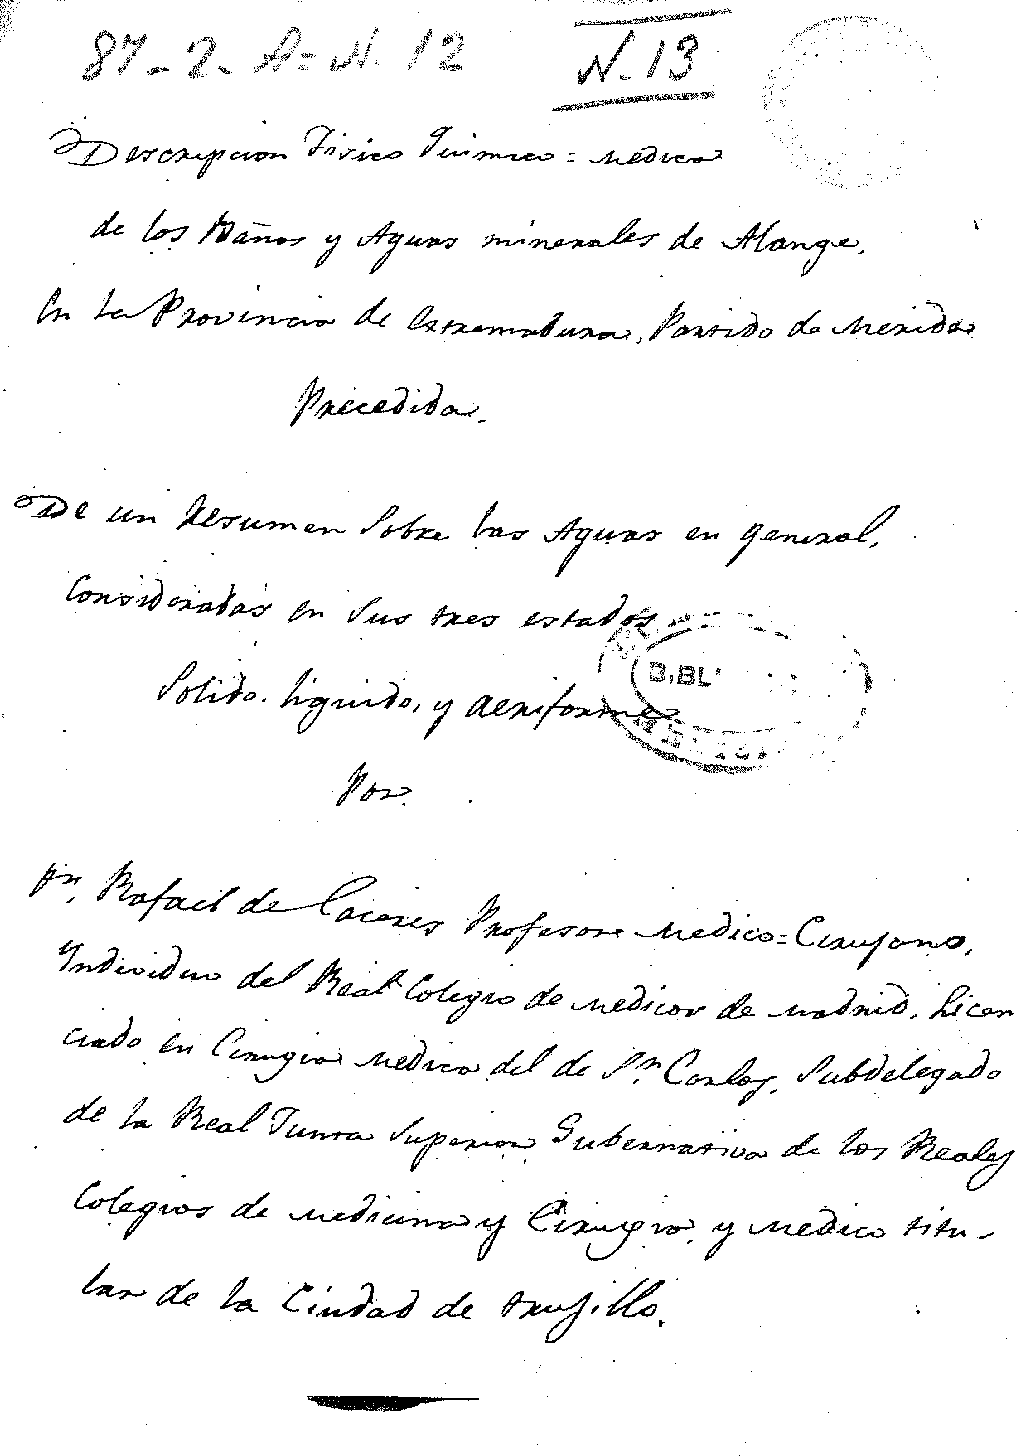 87-2-A=N. 12 N. 13
Descripcion Fisico Quimico = Medica
de los Baños y Aguas minerales de Alange,
En la Provincia de Estremadura, Partido de Merida
Precedida.
De un Resumen Sobre las Aguas en general,
Consideradas en Sus tres estados
Solido. liquido, y aeriforme.
Por
Dn. Rafael de Caceres Profesor Medico=Cirujano,
Individuo del Real Colegio de Medicos de Madrid, Licen
ciado en Cirugia Medica del de Sn. Carlos, Subdelegado
de la Real Junta Superior Gubernativa de los Reales
Colegios de Medicina y Cirugia, y Medico titu-
lar de la Ciudad de Trujillo.